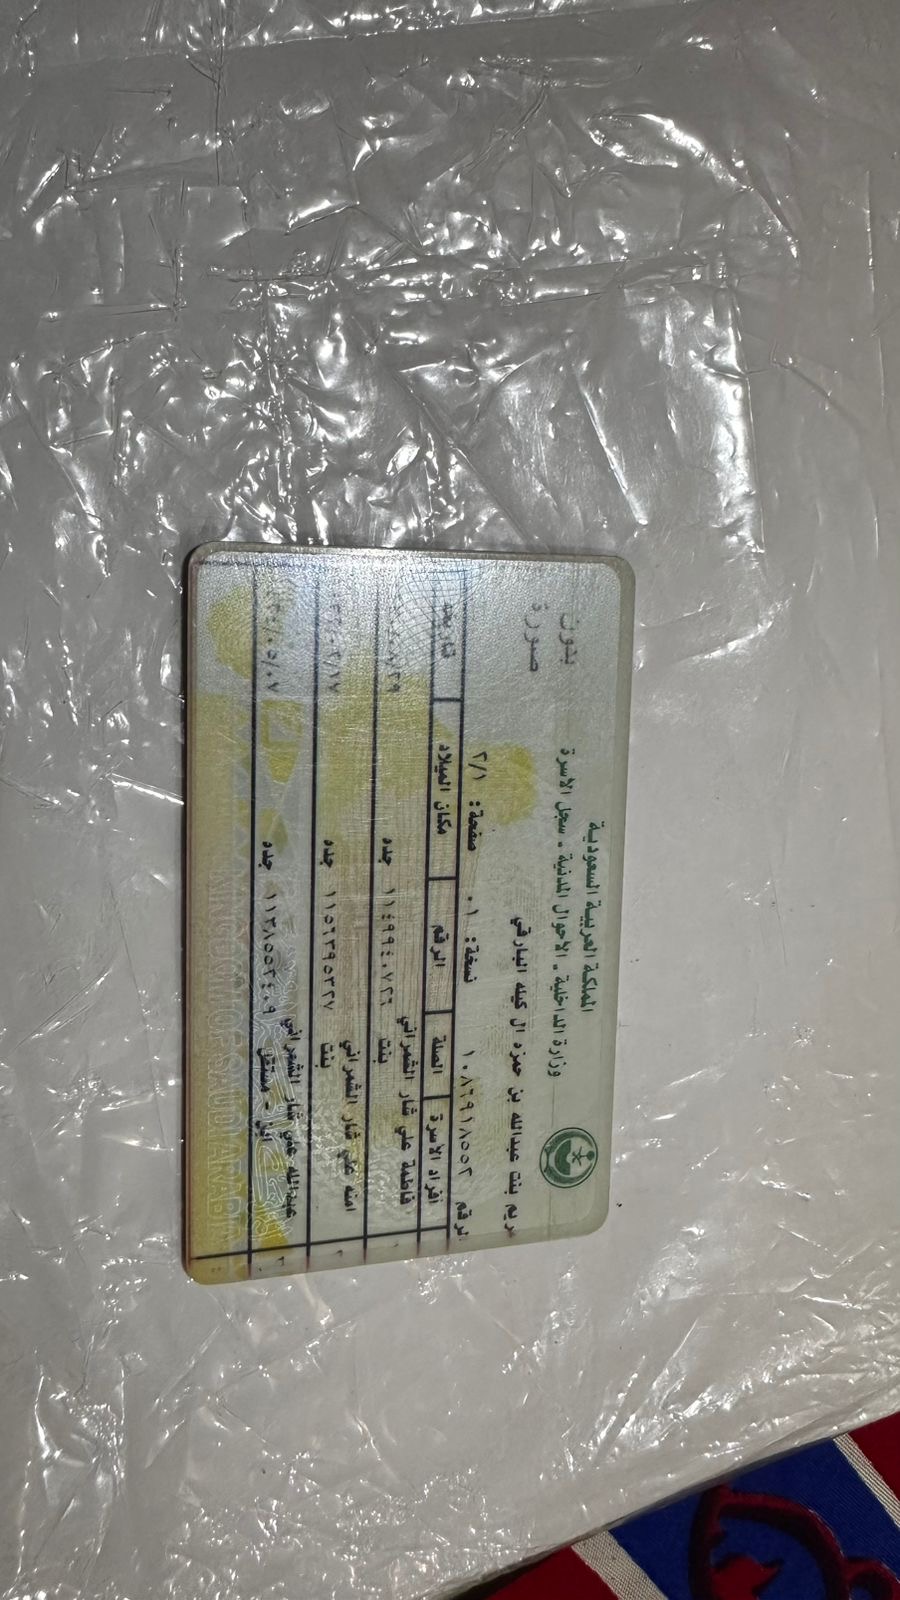 المملكة العربية السعودية
وزارة الداخلية - الاحوال المدنية - سجل الاسرة
بدون صورة
مريم بنت عبدالله بن حمزه ال كيله البارقي
الرقم ١٠٨٦٩١٨٥٥٢ نسخة: ٠١ صفحة: ٢/١
أفراد الأسرة الصلة الرقم مكان الميلاد تاريخه
١ فاطمة علي شار الشمراني
بنت ١١٤٩٩٤٠٧٢٦ جده
٢ امنه علي شار الشمراني
بنت ١١٥٦٣٩٥٣٢٧ جده
٣ عبدالله علي شار الشمراني
ابن - مستقل ١١٣٨٥٥٢٤٠٩ جده
٤
KINGDOM OF SAUDI ARABIA